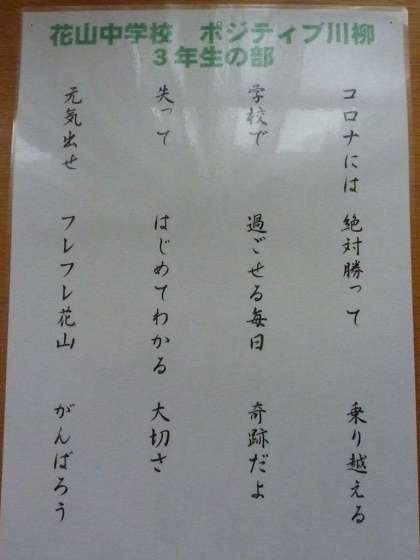 花山中学校　ポジティブ川柳
３年生の部
コロナには　絶対勝って　乗り越える
学校で　過ごせる毎日　奇跡だよ
失って　はじめてわかる　大切さ
元気出せ　フレフレ花山　がんばろう